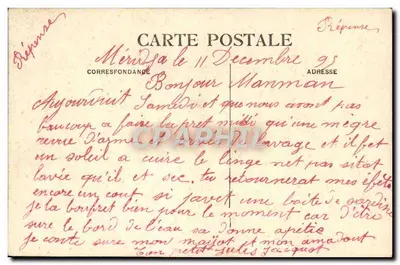 Réponse
Réponse
CARTE POSTALE
Méridja le 11 Decembre 95
CORRESPONDANCE ADRESSE
Bonjour Manman
Aujourduit Samedi et que nous avont pas
beaucoup a faire l'apret midi qu'une mègre
revue d'arme lavage et il fet
un soleil a cuire le linge net pas sitot
lavée qu'il et sec, tu retournerat mes
encore un cout si javet une boite de sardine
je la boufret bien pour le moment car d'être
sure le bord de l'eau sa donne apétie
je conte sure mon et mon amadout
ton petit Jules Jacquot